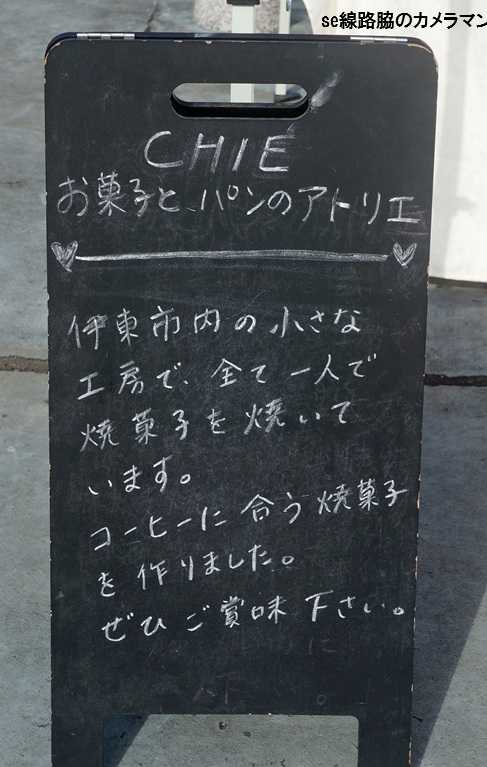 se線路脇のカメラマン
CHIE
お菓子と、パンのアトリエ
伊東市内の小さな
工房で、全て一人で
焼菓子を焼いて
います。
コーヒーに合う焼菓子
を作りました。
ぜひご賞味下さい。